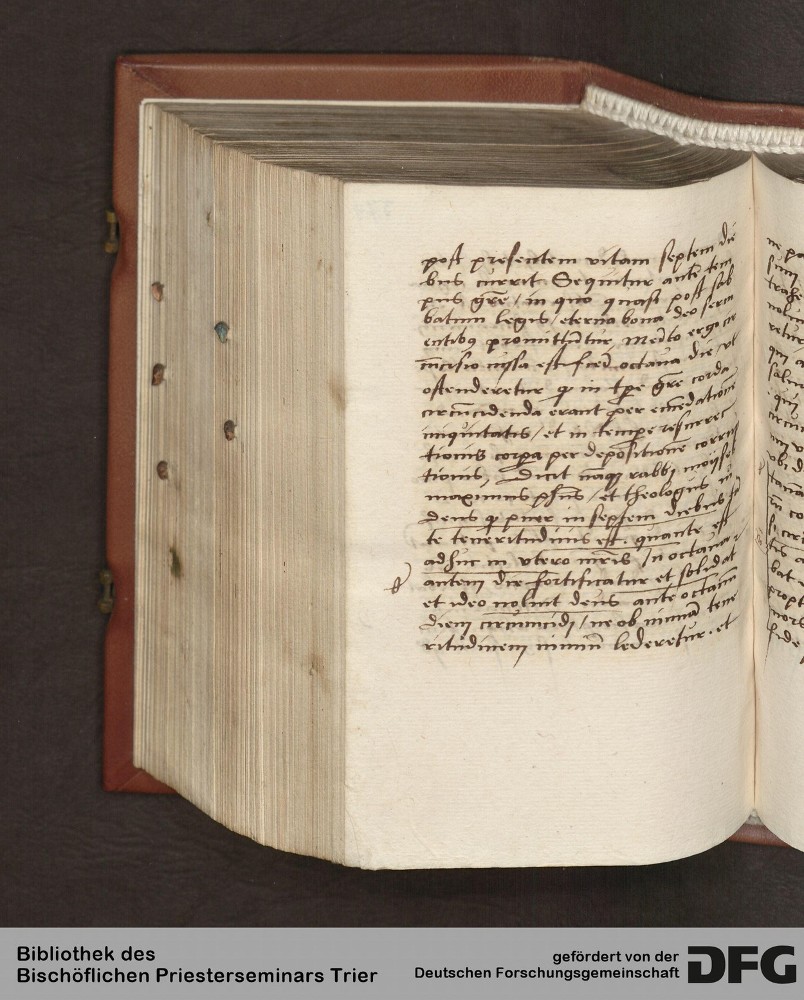 post presentem vitam septem die
bus currit. Sequitur aute tem
pus gre / in quo quasi post sab
batum legis / eterna bona deo servi
entibus promittutur, Merito ergo cir
cucisio iussa est fieri octava die / ut
ostenderetur q in tpe gre corda
circucidenda erant per emedatione
iniquitatis / et in tempe resurrec
tionis corpa per depositione corrup
tionis, Dicit naq rabbi moyses
maximus phus / et theologus iu
deus q puer in septem diebus
te teneritudinis est. quante est
adhuc in utero mris / in octava
autem die fortificatur et solidat
et ideo noluit deus ante octavu
diem circumcidi / ne ob nimiam tene
ritudinem nimiu lederetur. et
Bibliothek des
Bischöflichen Priesterseminars Trier
gefördert von der
Deutschen Forschungsgemeinschaft
DFG